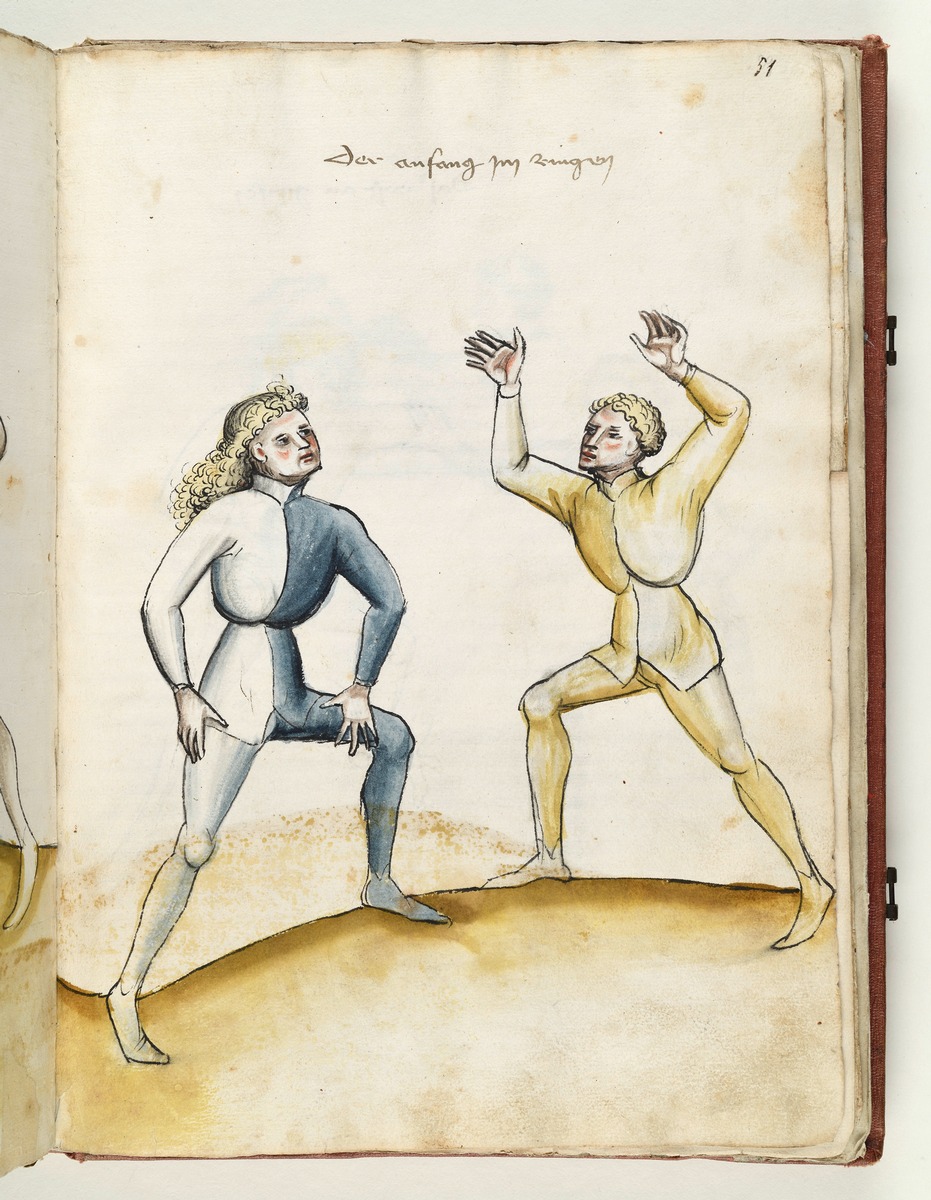 51
Der anfang jm Ringen